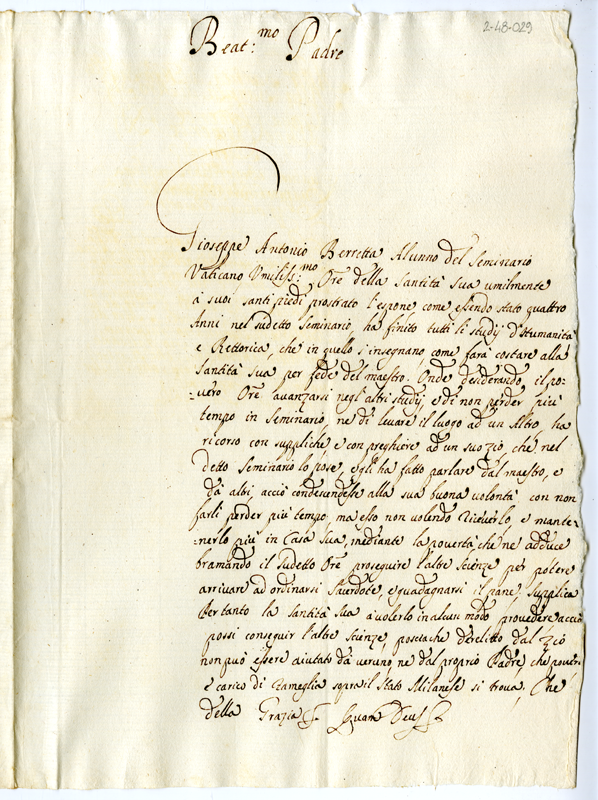 2-48-029
Beat:mo Padre
Gioseppe Antonio Berretta Alunno del Seminario
Vaticano Umiliss:mo Ore della Santità Sua umilmente
à suoi santi piedi prostrato l'espone, come essendo stato quattro
Anni nel sudetto Seminario, ha finito tutti li studij d'Humanità
e Rettorica, che in quello s'insegnano, come farà costare alla
Santità sua per fede del maestro. Onde desiderando il po-
-:vero Ore avanzarsi negl'altri studij, e di non perder più
tempo in Seminario, ne di levare il luogo ad un Altro, ha
ricorso con suppliche, e con preghiere ad un suo zio, che nel
detto Seminario lo pose, e gli ha fatto parlare dal maestro, e
dà altri, acciò condescendesse alla sua buona volontà con non
farli perder più tempo, ma esso non volendo riceverlo, e mante-
-:nerlo più in Casa sua, mediante la povertà che ne adduce
bramando il sudetto Ore proseguire l'altre scienze per potere
arrivare ad ordinarsi Sacerdote, e guadagnarsi il pane, supplica
Per tanto la Santità sua à volerlo in alcun modo provedere acciò
possi conseguir l'altre scienze, posciache derelitto dal zio
non può essere aiutato dà veruno, ne dal proprio Padre, che povero
e carico di Fameglia sopra il Stato Milanese si trova, Che
della Grazia Quam Deus